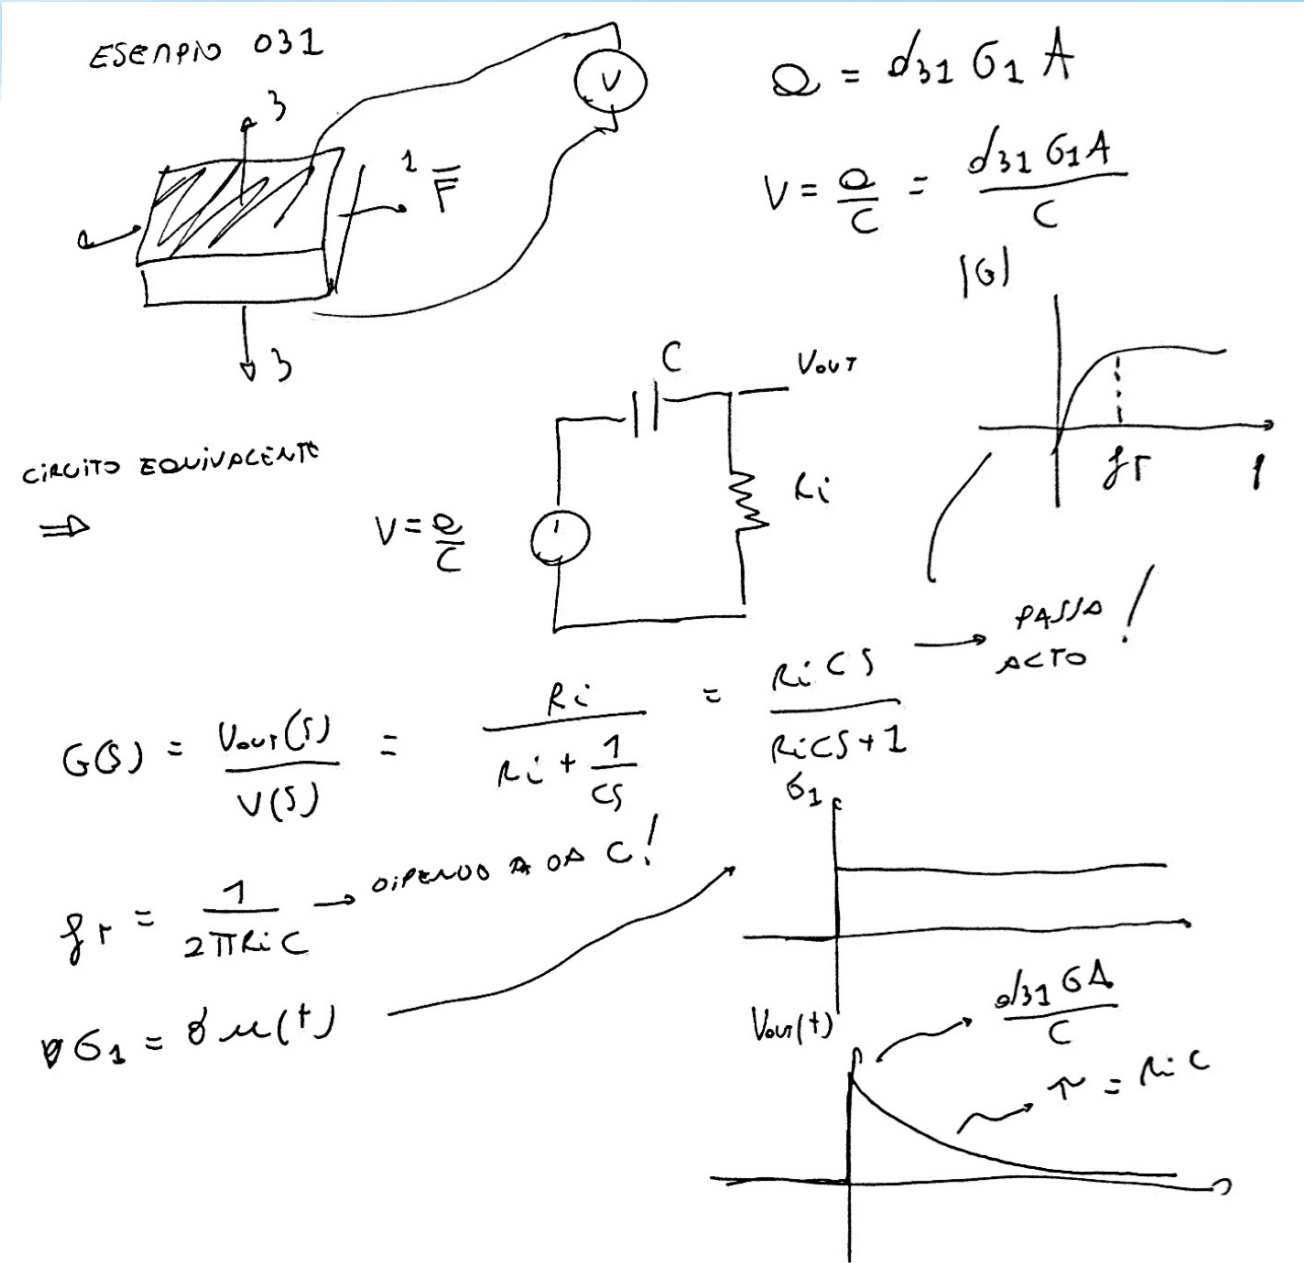 ESEMPIO d31
V
3
1 F̅
3
Q = d31 σ1 A
V = Q/C = d31 σ1 A / C
|G|
fT
f
CIRCUITO EQUIVALENTE
⇒
V = Q/C
C
VOUT
Ri
G(S) = Vout(S)/V(S) = Ri / (Ri + 1/CS) = RiCS / (RiCS+1) → PASSA ALTO!
fT = 1 / 2πRiC → DIPENDE DA C!
σ1 = u(t)
σ1
Vout(t)
d31 σ A / C
τ = RiC